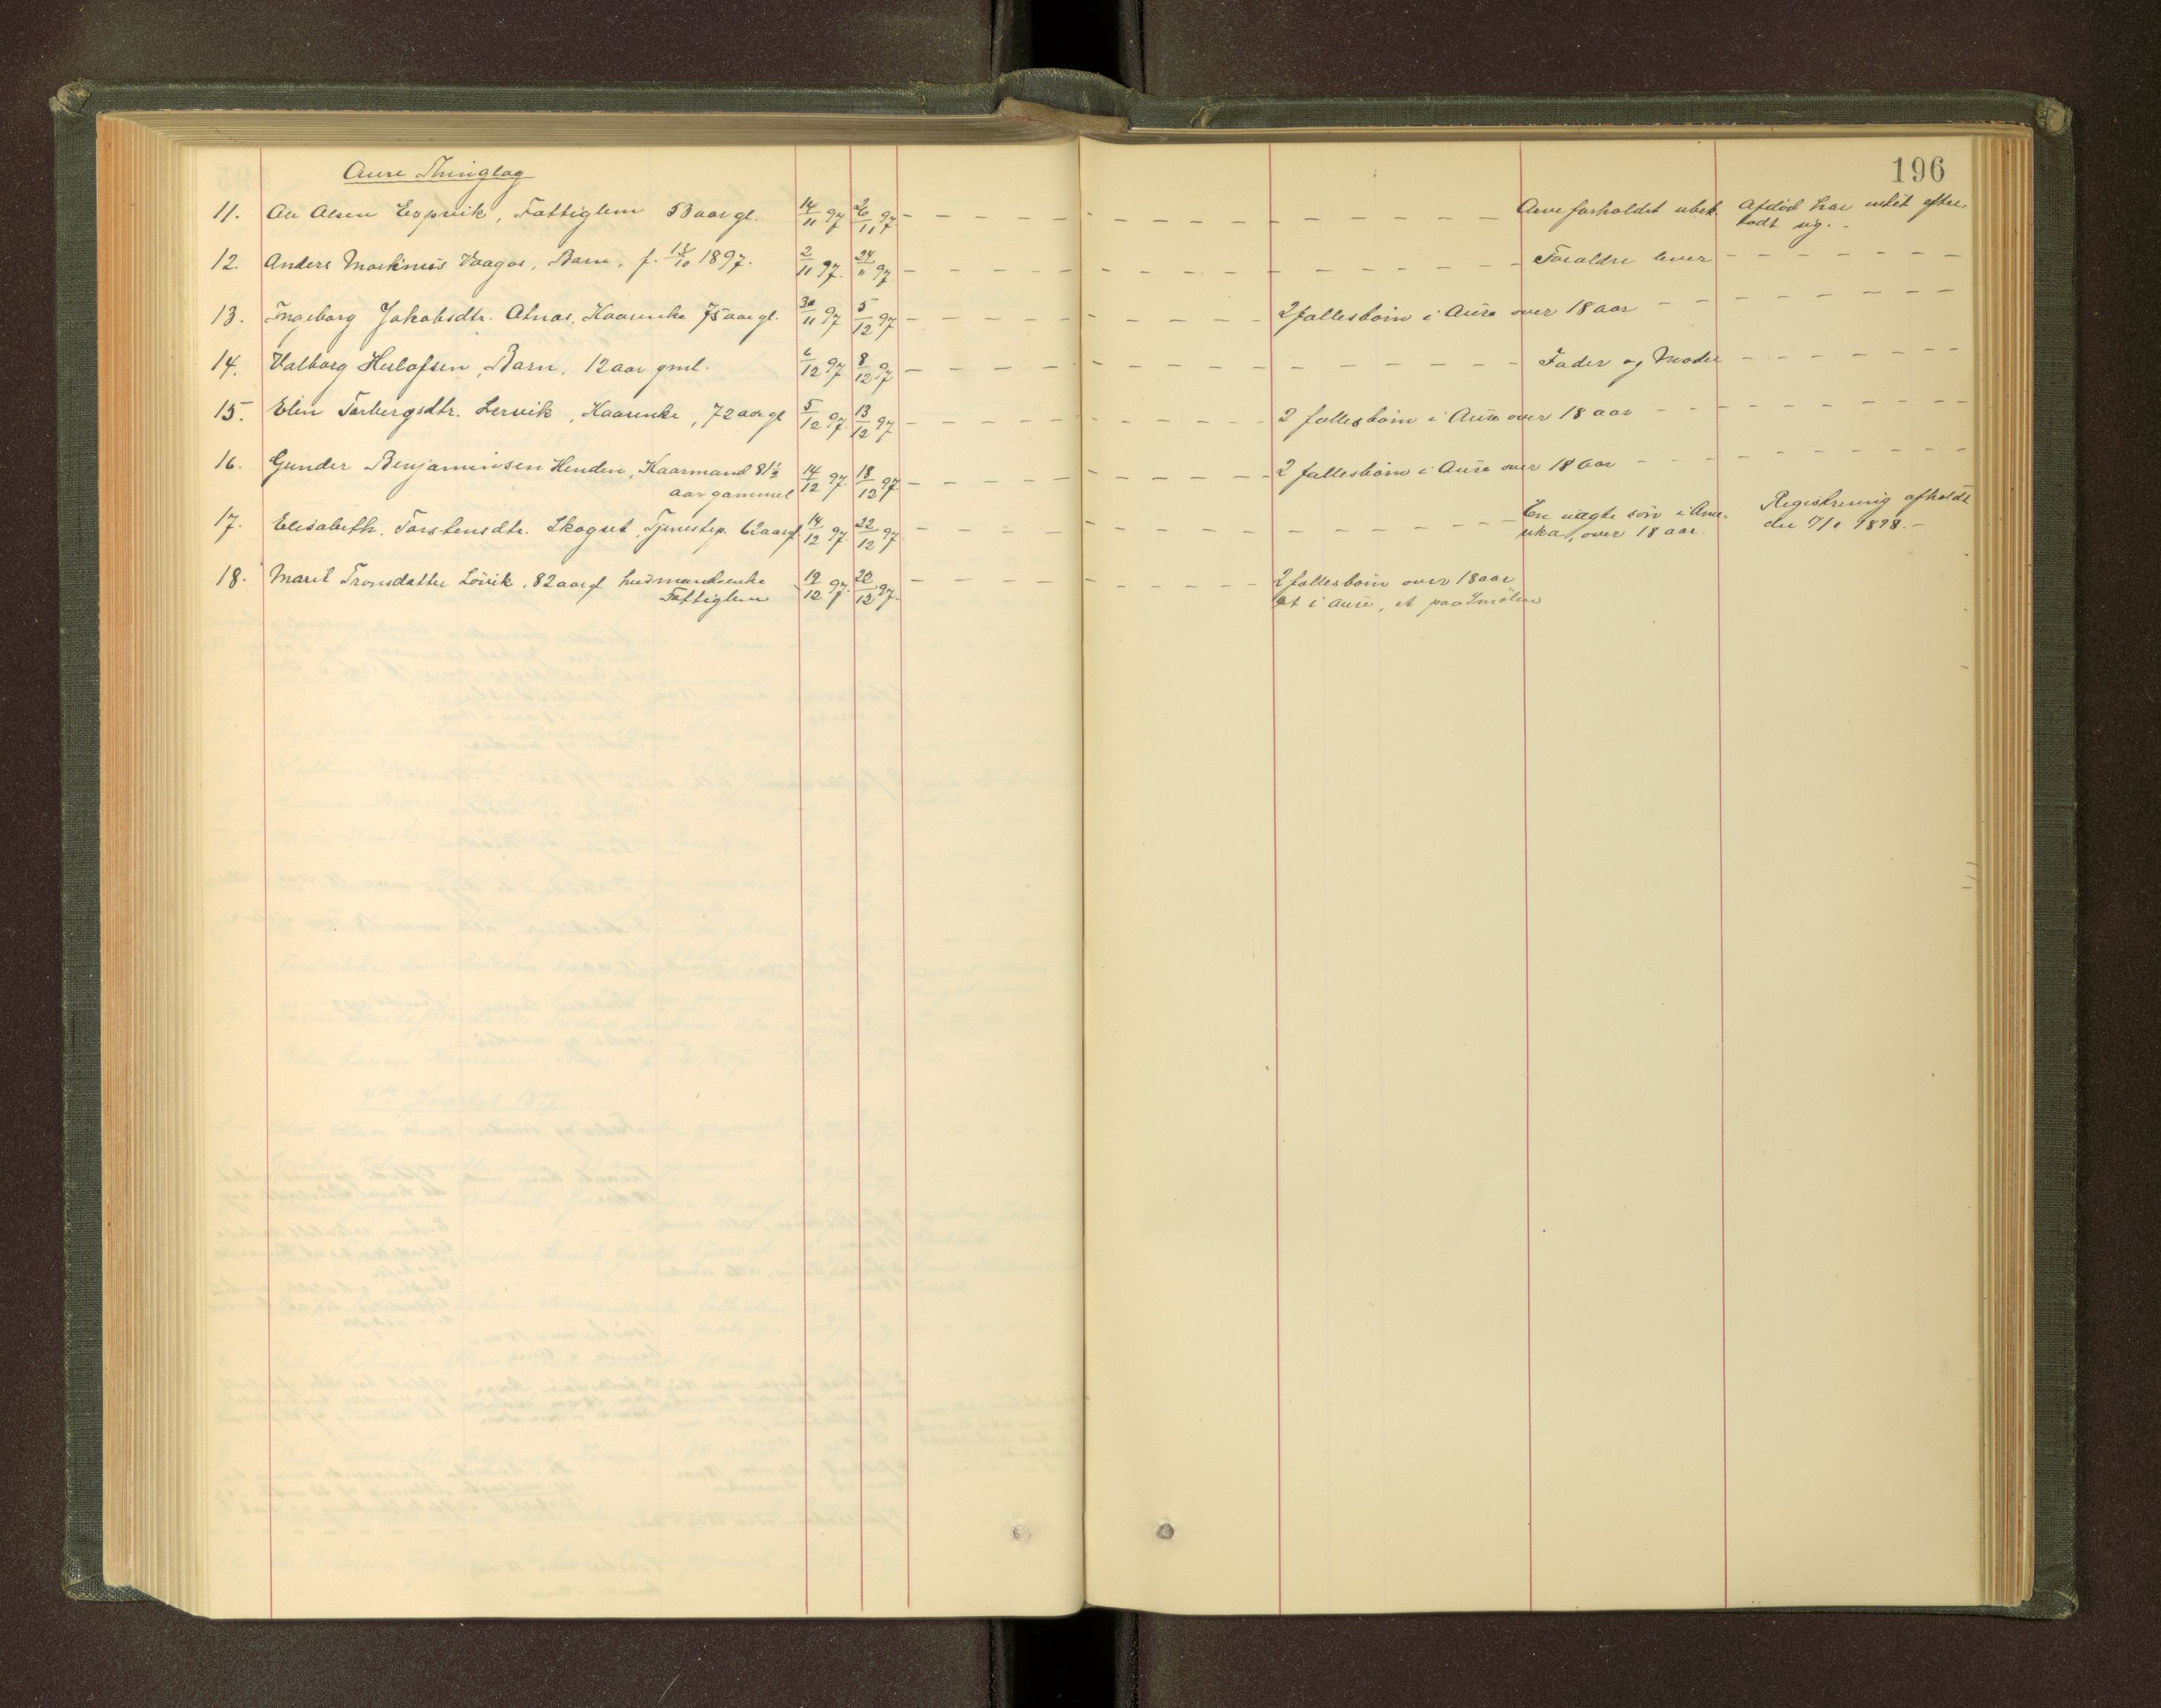 196
Aure Thinglag
11. Ole Olsen Espvik, Fattiglem 53 aar gl. 14/11 97 26/11 97 Arveforholdet ubek. Afdöd har intet efter
ladt sig. -
12. Anders Markinus Vaagos, Barn, f. 13/10 1897. 2/11 97. 24/11 97. Forældre lever
13. Ingeborg Jakobsdtr. Atnas, Kaarenke 75 aar gl. 30/11 97 5/12 97 2 fællesbörn i Aure over 18 aar
14. Valborg Herlofsen, Barn, 12 aar gml. 6/12 97 8/12 97 Fader og Moder
15. Elen Torbergsdtr. Lervik, Kaarenke, 72 aar gl 5/12 97. 13/12 97 2 fællesbörn i Aure over 18 aar
16. Gunder Benjaminsen Henden, Kaarmand 81½
aar gammel 14/12 97. 18/12 97. 2 fællesbörn i Aure over 18 aar
17. Elisabeth Torstensdtr. Skogset, Tjenestep. 62 aar gl. 14/12 97 22/12 97 En uægte sön i Ame-
rika, over 18 aar. Registrering afholdt
den 1898. -
18. Marit Tronsdatter Lövik, 82 aar gl husmandsenke
Fattiglem 19/12 97. 22/12 97. 2 fællesbörn over 18 aar
et i Aure, et paa Smölen